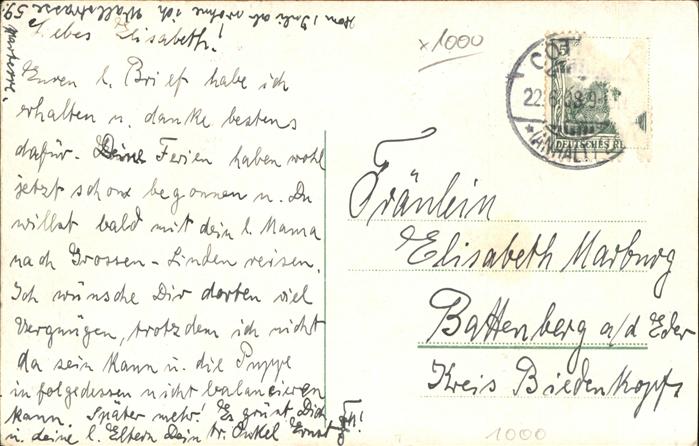 Vom 1 Juli ab wohne ich Wallstrasse 59.
Liebes Elisabeth!
Euren l. Brief habe ich
erhalten u. danke bestens
dafür. Deine Ferien haben wohl
jetzt schon begonnen u. Du
willst bald mit dein l. Mama
nach Grossen-Linden reisen.
Ich wünsche Dir dorten viel
Vergnügen, trotzdem ich nicht
da sein kann u. die Puppe
infolgedessen nicht balancieren
kann. Später mehr! Es grüst Dich
u. deine l. Eltern Dein tr. Onkel Ernst
x1000
CÖT
22.6.
(ANHALT)
5
DEUTSCHES R
Fräulein
Elisabeth Marburg
Battenberg a/d Eder
Kreis Biedenkopf
1000